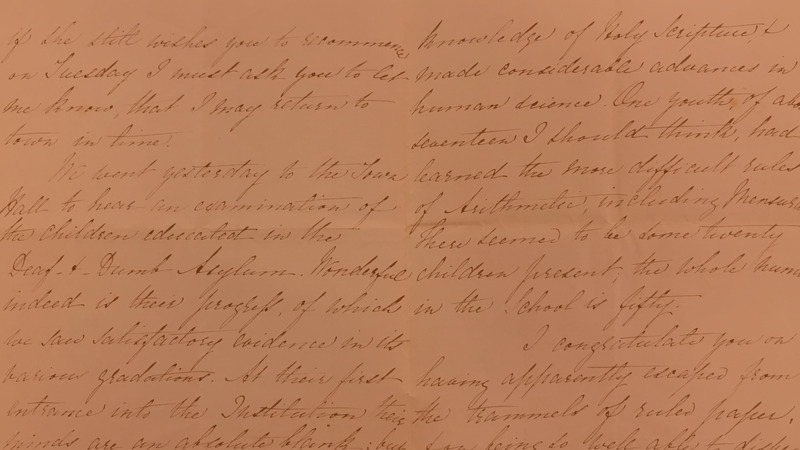 if she still wishes you to recommence
on Tuesday I must ask you to let
me know, that I may return to
town in time.
We went yesterday to the Town
Hall to hear an examination of
the children educated in the
Deaf & Dumb Asylum. Wonderful
indeed is their progress, of which
we saw satisfactory evidence in its
various gradations. At their first
entrance into the Institution their
minds are an absolute blank; but
knowledge of Holy Scripture, &
made considerable advances in
human science. One youth, of
seventeen I should think, had
learned the more difficult rules
of Arithmetic, including
There seemed to be some twenty
children present, the whole
in the School is fifty.
I congratulate you on
having apparently escaped from
the trammels of ruled paper,
being so well able to